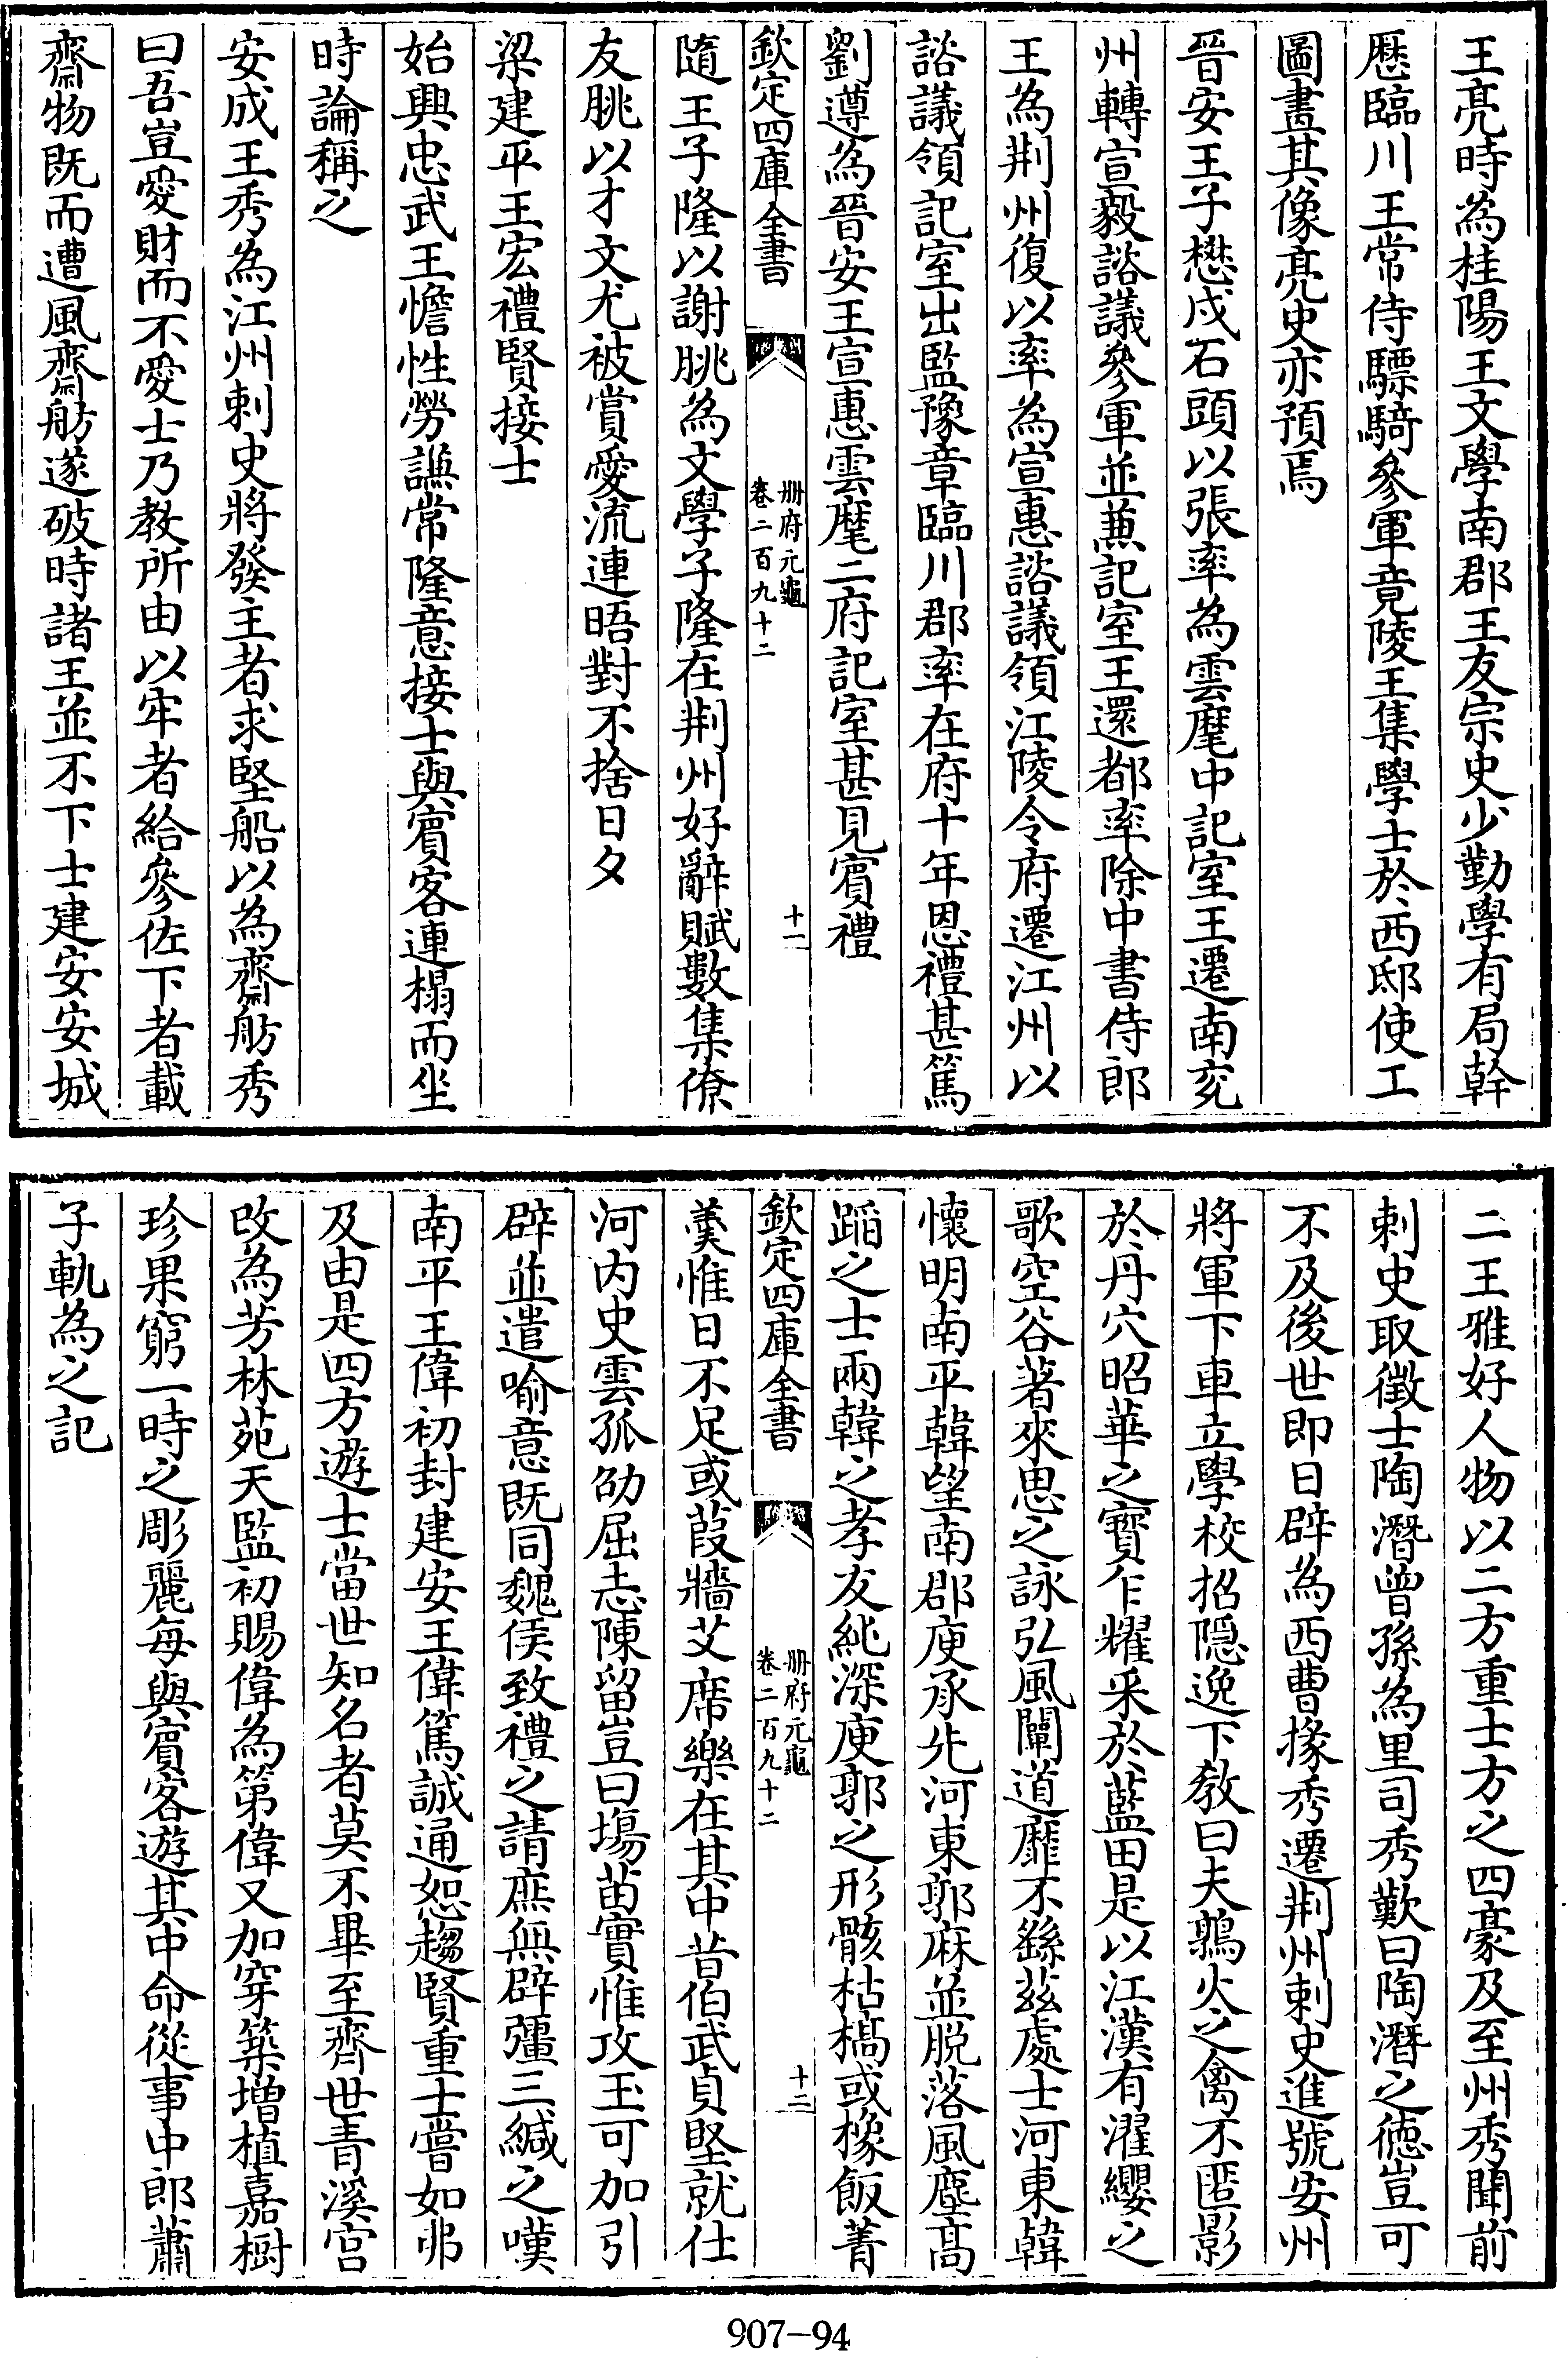 王亮時為桂陽王文學南郡王友宗史少勤學有局幹
歴臨川王常侍驃騎參軍竟陵王集學士於西邸使工
圖畫其像亮史亦預焉
晉安王子懋戍石頭以張率為雲麾中記室王遷南兖
州轉宣毅諮議參軍並兼記室王還都率除中書侍郎
王為荆州復以率為宣惠諮議領江陵令府遷江州以
諮議領記室出監豫章臨川郡率在府十年恩禮甚篤
劉遵為晉安王宣惠雲麾二府記室甚見賓禮
欽定四庫全書
冊府元龜
卷二百九十二
十一
隨王子隆以謝朓為文學子隆在荆州好辭賦數集僚
友朓以才文尤被賞愛流連晤對不捨日夕
梁建平王宏禮賢接士
始興忠武王憺性勞謙常隆意接士與賓客連榻而坐
時論稱之
安成王秀為江州刺史將發主者求堅船以為齋舫秀
曰吾豈愛財而不愛士乃教所由以牢者給參佐下者載
齋物既而遭風齋舫遂破時諸王並不下士建安安城
二王雅好人物以二方重士方之四豪及至州秀聞前
刺史取徵士陶潛曾孫為里司秀歎曰陶潛之德豈可
不及後世即日辟為西曹掾秀遷荆州刺史進號安州
將軍下車立學校招隠逸下教曰夫鶉火之禽不匿影
於丹穴昭華之寶乍耀采於藍田是以江漢有濯纓之
歌空谷著來思之詠弘風闡道靡不繇茲處士河東韓
懷明南平韓望南郡庾承先河東郭麻並脱落風塵高
蹈之士兩韓之孝友純深庾郭之形骸枯槁或橡飯菁
欽定四庫全書
冊府元龜
卷二百九十二
十二
羹惟日不足或葭牆艾席樂在其中昔伯武貞堅就仕
河内史雲孤劭屈志陳留豈曰塲苗實惟攻玉可加引
辟並遣喻意既同魏侯致禮之請庶無辟彊三緘之嘆
南平王偉初封建安王偉篤誠通恕趨賢重士嘗如弗
及由是四方遊士當世知名者莫不畢至齊世青溪宮
改為芳林苑天監初賜偉為第偉又加穿築增植嘉樹
珍果窮一時之彫麗每與賓客遊其中命從事中郎蕭
子軌為之記
907-94